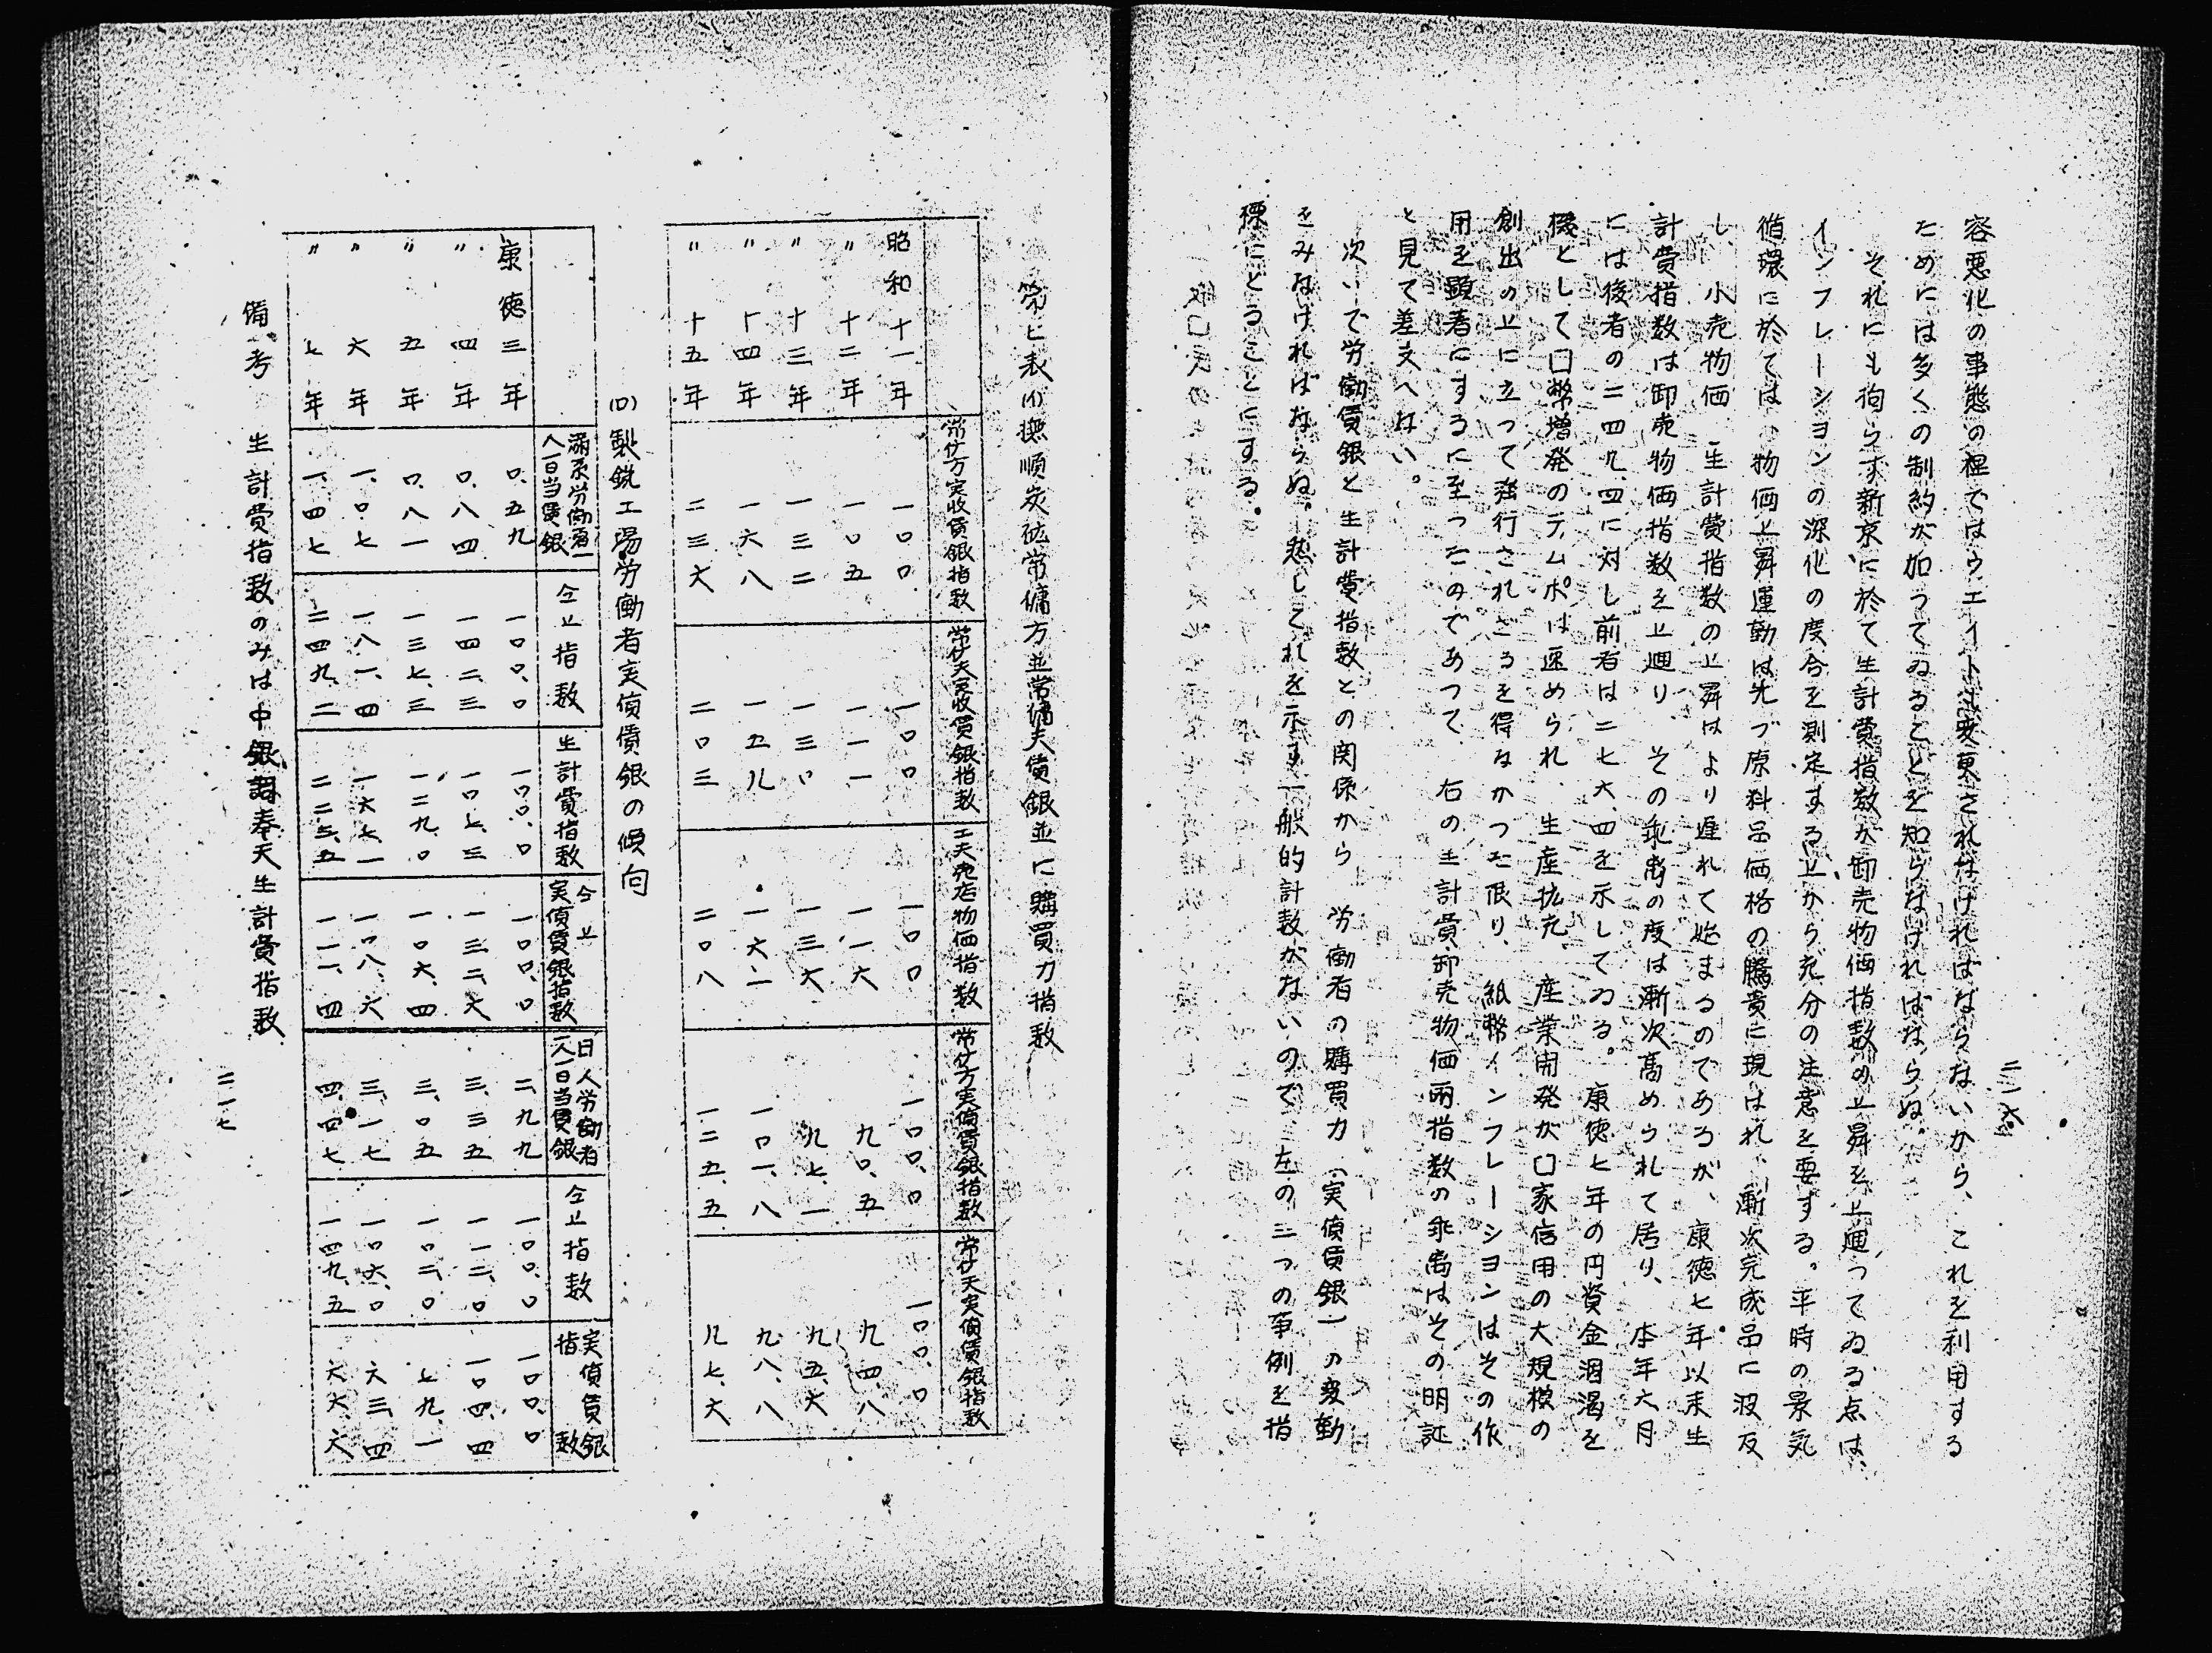 二一六
容悪化の事態の裡ではウエイトも変更されなければならないから、これを利用する
ためには多くの制約が加つてゐることを知らなければならぬ。
それにも拘らず新京に於て生計費指数が卸売物価指数の上昇を上廻つてゐる点は、
インフレーションの深化の度合を測定する上から充分の注意を要する。平時の景気
循環に於ては、物価上昇運動は先づ原料品価格の騰貴に現はれ、漸次完成品に波及
し、小売物価、生計費指数の上昇はより遅れて始まるのであるが、康徳七年以来生
計費指数は卸売物価指数を上廻り、その乖离の度は漸次高められて居り、本年六月
には後者の二四九、四に対し前者は二七六、四を示してゐる。康徳七年の円資金涸渇を
機として口幣増発のテムポは速められ、生産拡充、産業開発が口家信用の大規模の
創出の上に立つて強行されざるを得なかつた限り、紙幣インフレーションはその作
用を顕着にするに至つたのであつて、右の生計費、卸売物価両指数の乖离はその明証
と見て差支へない。
次いで労働賃銀と生計費指数との関係から、労働者の購買力(実値賃銀)の変動
をみなければならぬ。然しそれを示す一般的計数がないので、左の三つの事例を指
標にとることにする。
第七表(イ)撫順炭砿常傭方並常傭夫賃銀並に購買力指数
常仂方実收賃銀指数 常仂夫実收賃銀指数 工夫売店物価指数 常仂方実値賃銀指数 常仂夫実値賃銀指数
昭和十一年 一〇〇 一〇〇 一〇〇 一〇〇、〇 一〇〇、〇
〃十二年 一〇五 一一一 一一六 九〇、五 九四、八
〃十三年 一三二 一三〇 一三六 九七、一 九五、六
〃十四年 一六八 一五八 一六二 一〇一、八 九八、八
〃十五年 二三六 二〇三 二〇八 一二五、五 八七、六
(ロ)製銑工場労働者実値賃銀の傾向
満系労働者一人一日当賃銀 仝上指数 生計費指数 仝上実値賃銀指数 日人労働者一人一日当賃銀 仝上指数 実値賃銀指数
康徳三年 〇、五九 一〇〇、〇 一〇〇、〇 一〇〇、〇 二、九九 一〇〇、〇 一〇〇、〇
〃四年 〇、八四 一四二、三 一〇七、三 一三二、六 三、三五 一一二、〇 一〇四、四
〃五年 〇、八一 一三七、三 一二九、〇 一〇六、四 三、〇五 一〇二、〇 七九、一
〃六年 一、〇七 一八一、四 一六七、一 一〇八、六 三、一七 一〇六、〇 六三、四
〃七年 一、四七 二四九、二 二二三、五 一一一、四 四、四七 一四九、五 六六、六
備考 生計費指数のみは中銀調奉天生計費指数
二一七